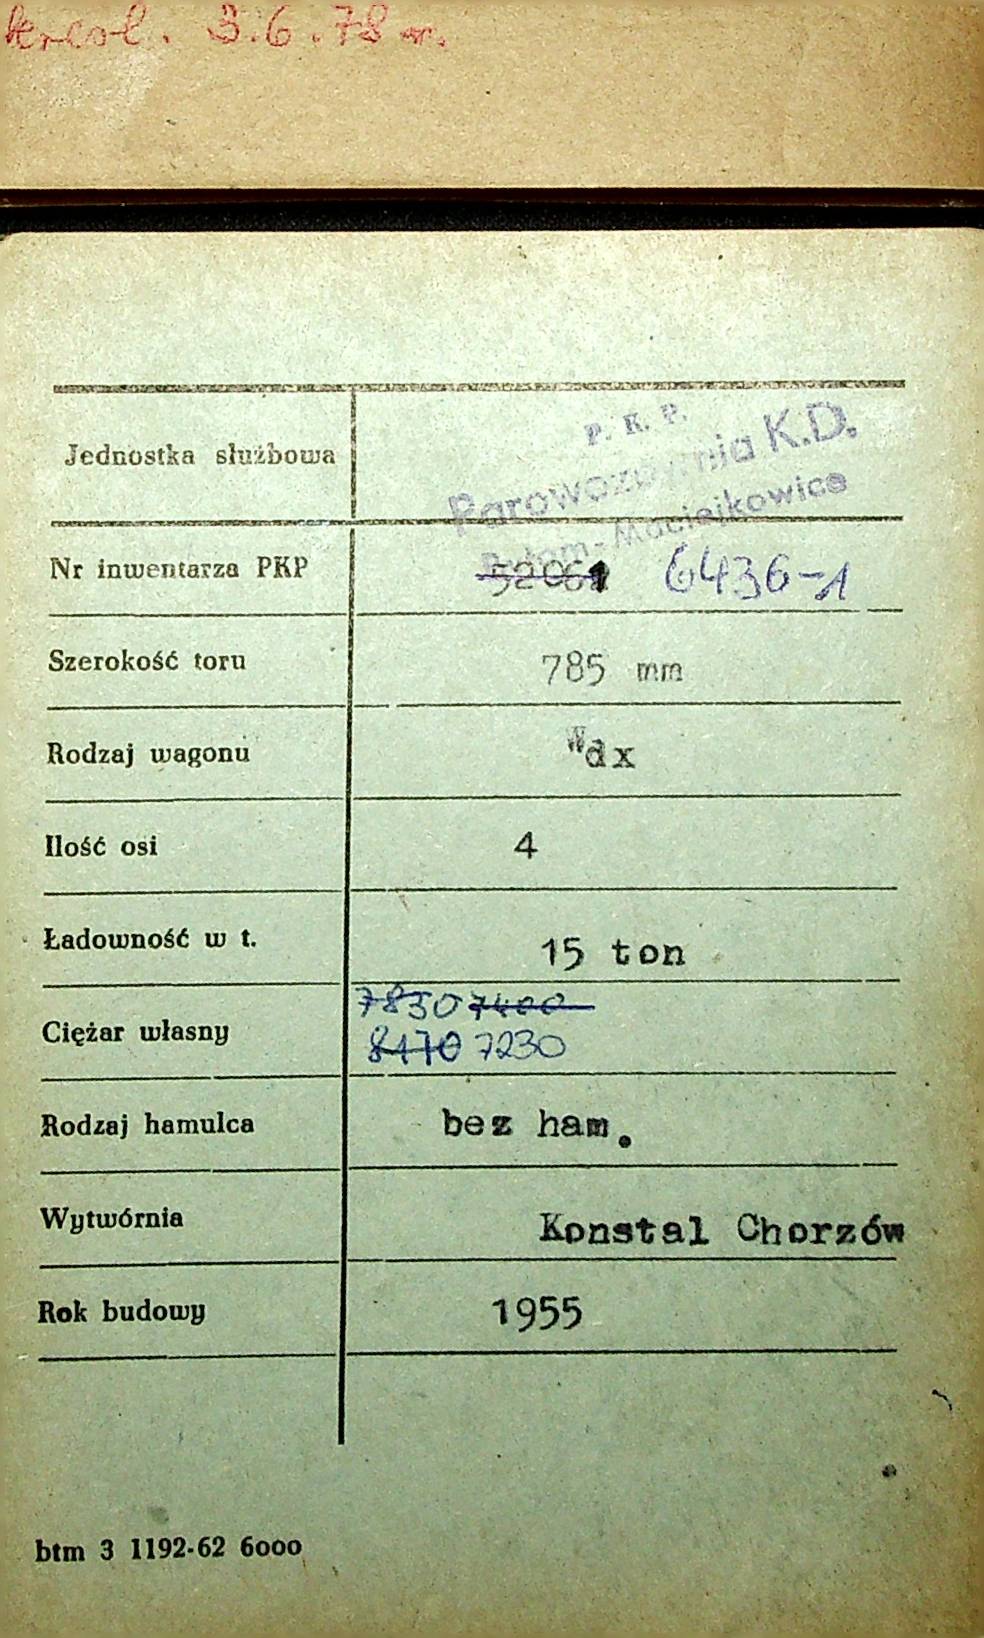 kreśl. 3.6.78 r.
Jednostka służbowa
P. K. P.
Parowozownia K.D.
Bytom-Maciejkowice
Nr inwentarza PKP 52061 6436-1
Szerokość toru 785 mm
Rodzaj wagonu Wdx
Ilość osi 4
Ładowność w t. 15 ton
Ciężar własny 7830 7400
8470 7230
Rodzaj hamulca bez ham.
Wytwórnia Konstal Chorzów
Rok budowy 1955
btm 3 1192-62 6000